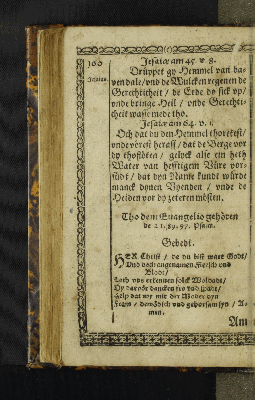 100
Jesaiæ am 45. v. 8.
Drüppet gy Hemmel van ba-
ven dale / vnd de Wulcken regenen de
Gerechticheit / de Erde do sick vp /
vnde bringe Heil / vnde Gerechti-
cheit wasse mede tho.
Jesaiæ am 64. v. 1.
Och dat du den Hemmel thoretest /
vnde vörest heraff / dat de Berge vor
dy thoflöten / gelyck alse ein heth
Water van hefftigem Vüre vor-
südt / dat dyn Name kundt würde
manck dynen Vyenden / vnde de
Heiden vor dy zeteren mösten.
Tho dem Euangelio gehören
de 21. 89. 97. Psalm.
Gebedt.
HEX Christ / de du bist ware Godt /
Vnd doch angenamen Fleesch vnd
Blodt /
Lath vns erkennen solck Woldadt /
Dy darvör dancken fro vnd spade /
Help dat wy mit der Moder dyn
Fram / demödich vnd gehorsam syn / A-
men.
Am